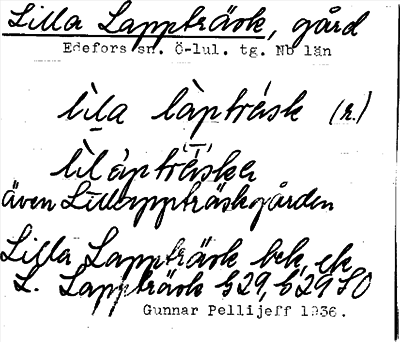 Lilla Lappträsk, gård
Edefors sn. Ö-lul. tg. Nb län
lìla làptrésk (r.)
lìlàptréska
även Lillappträskgården
Lilla Lappträsk bek, ek
L. Lappträsk §29, §29 SO
Gunnar Pellijeff 1936.